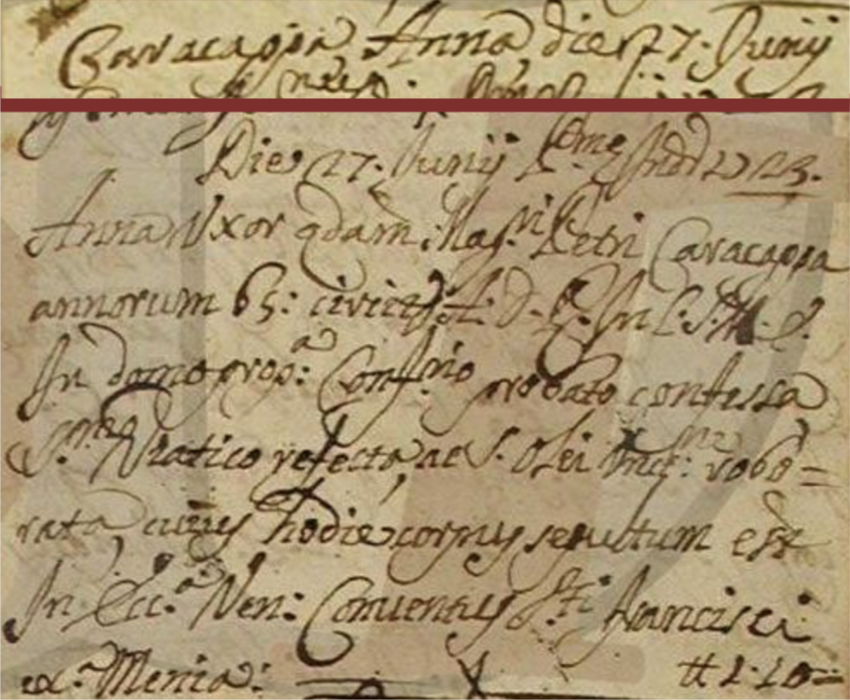 Caracappa Anna die 27. Junij
Die 27. Junij p.me Indis 1723.
Anna Uxor qdam Mag.ri Petri Caracappa
annorum 65: civits H. D. A. In C. S. M. E.
In domo prop.a Confrio probato confessa
S.mo Viatico refecta, ac S. Olei Unct: robo=
rata cuius hodie corpus sepultum est
In Ecc.a Ven: Conventus S.ti Francisci
ex.a Menia:
tt 1.10=